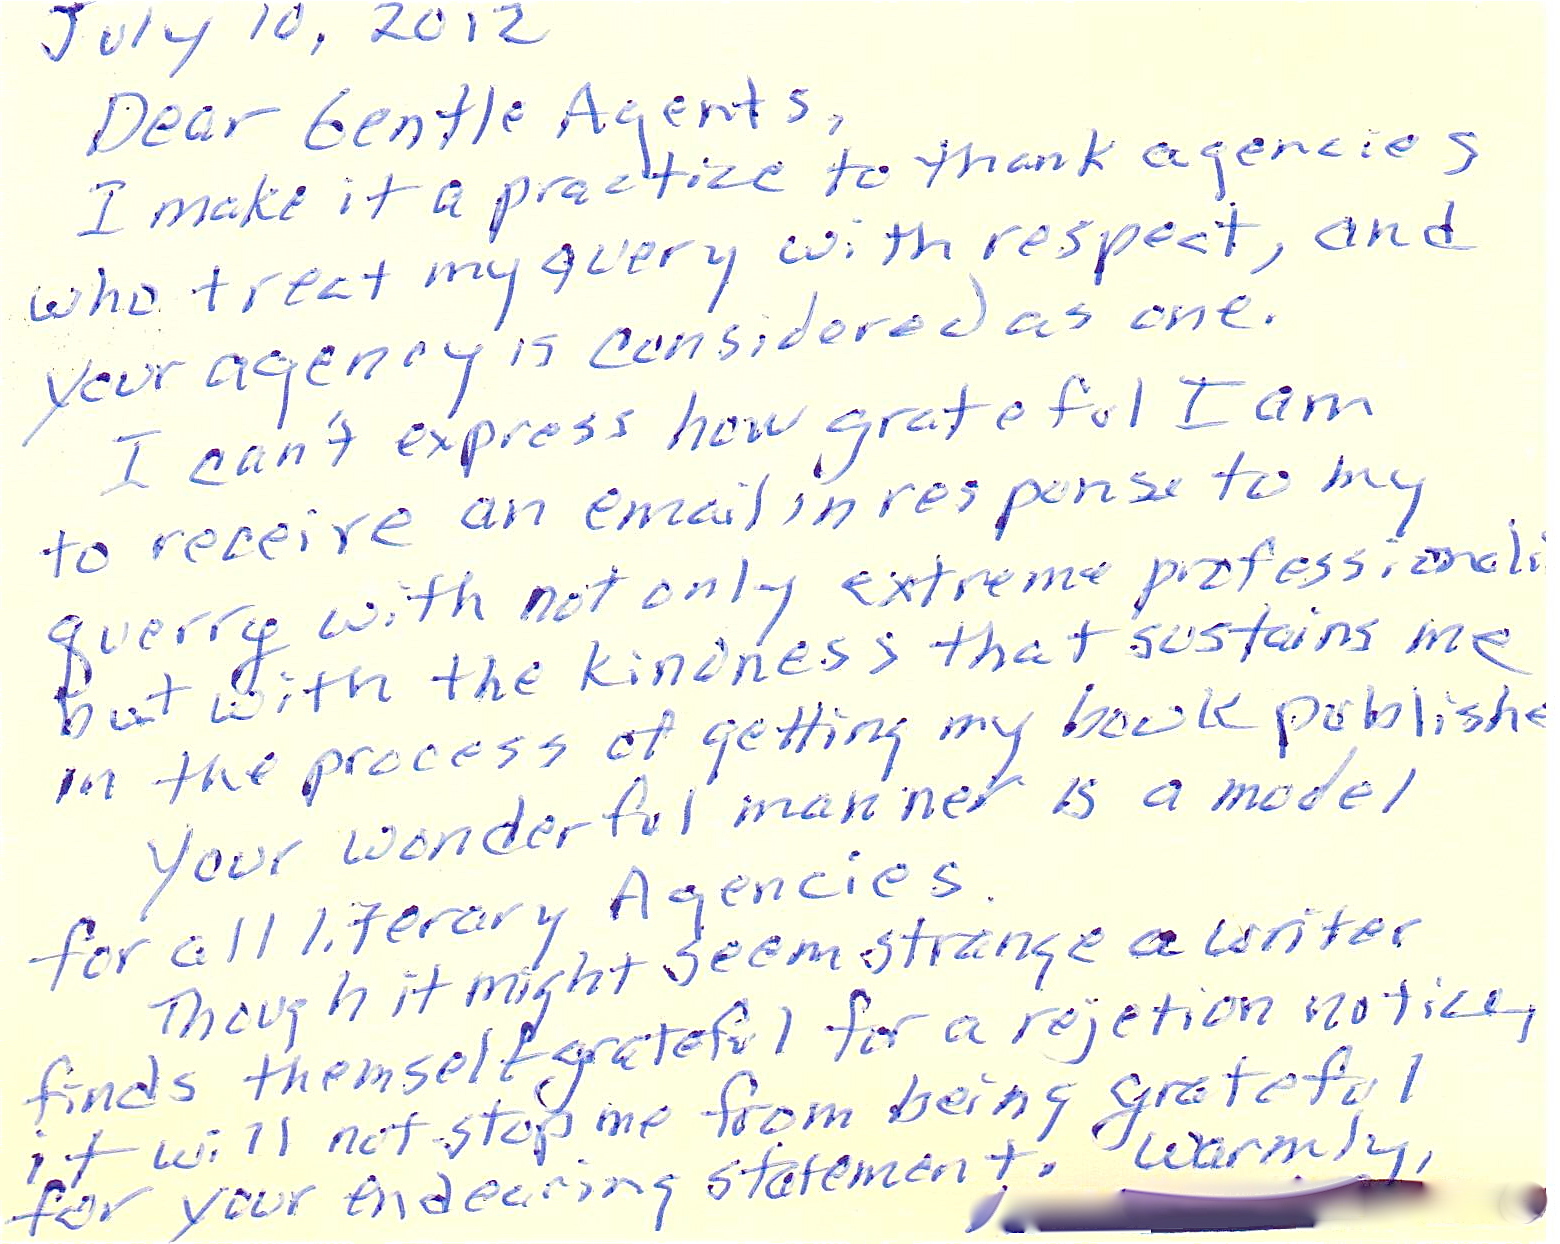 July 10, 2012
Dear Gentle Agents,
I make it a practice to thank agencies
who treat my query with respect, and
your agency is considered as one.
I can't express how grateful I am
to receive an email in response to my
querry with not only extreme professionali
but with the kindness that sustains me
in the process of getting my book publishe
Your wonderful manner is a model
for all literary Agencies.
Though it might seem strange a writer
finds themself grateful for a rejetion notice,
it will not stop me from being grateful
for your endearing statement. Warmly,